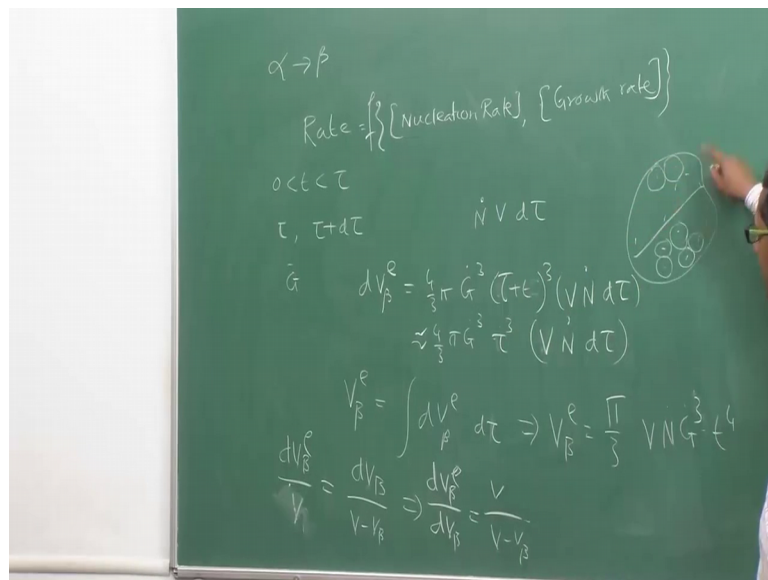 α → β
Rate = f{[Nucleation Rate], [Growth rate]}
0 < t < τ
τ, τ+dτ Ṅ V dτ
Ġ dV_β^e = 4/3 π Ġ^3 (τ+t)^3 (V Ṅ dτ)
≈ 4/3 π G^3 τ^3 (V Ṅ dτ)
V_β^e = ∫ dV_β^e dτ ⇒ V_β^e = π/3 V Ṅ Ġ^3 t^4
dV_β^e/V = dV_β/(V-V_β) ⇒ dV_β^e/dV_β = V/(V-V_β)